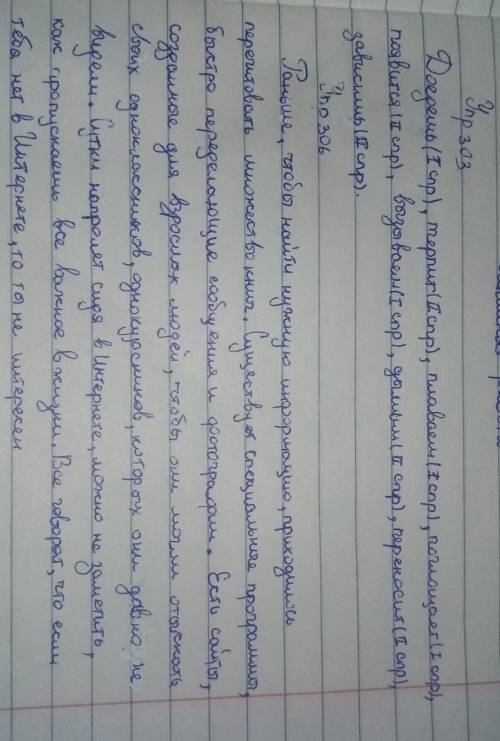 Упр 303
Догреешь (I спр), терпит (II спр), плаваем (I спр), поглощает (I спр),
появится (II спр), вызываем (I спр), дышим (II спр), переносит (II спр),
зависишь (II спр).
Упр 306
Раньше, чтобы найти нужную информацию, приходилось
перечитовать множество книг. Существуют специальные программы,
быстро переделающие сообщения и фотографии. Есть сайты,
созданные для взрослых людей, чтобы они могли отыскать
своих одноклассников, однокурсников, которых они давно не
видели. Сутки напролет сидя в Интернете, можно не заметить,
как пропускаешь все важное в жизни. Все говорят, что если
тебя нет в Интернете, то ты не интересен